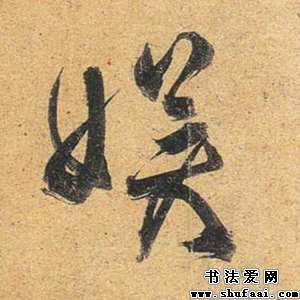 娱
书法爱网
www.shufaai.com